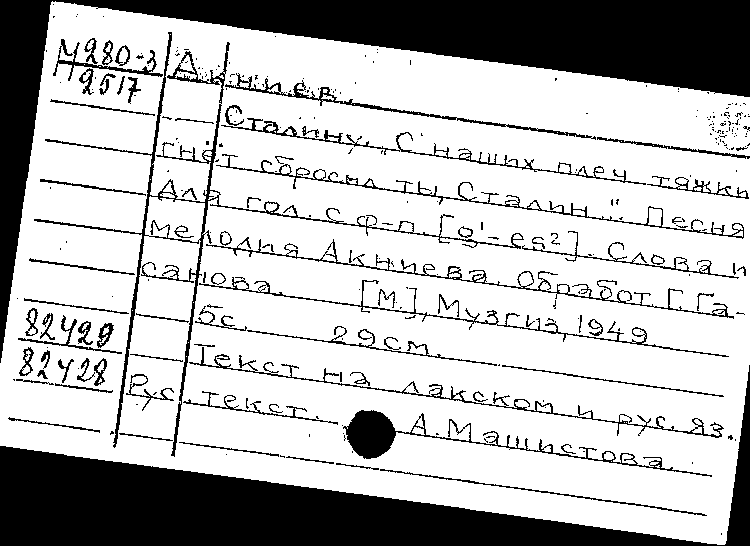 М280-3
2517
Акниев.
Сталину. „С наших плеч тяжки
гнёт сбросил ты, Сталин..." Песня
для гол. с ф-п. [g¹-es²]. Слова и
мелодия Акниева. Обработ. Г. Га-
санова. [М.], Музгиз, 1949
5с. 29см.
82429
Текст на лакском и рус. яз.
82428
Рус. текст. А. Машистова.